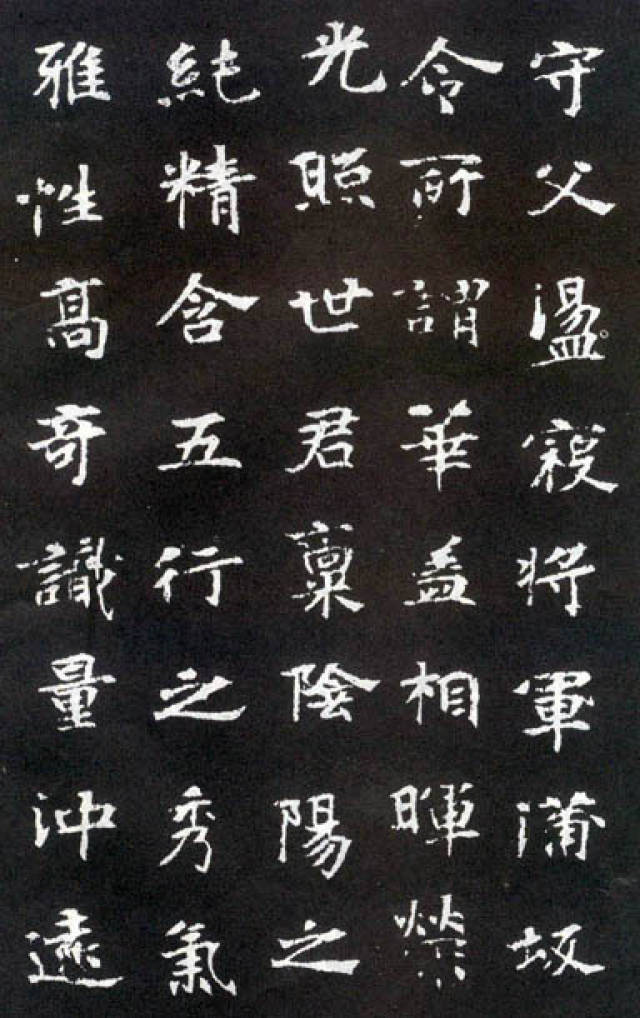 守父盪寇將軍蒲坂
令所謂華盖相暉榮
光照世君稟陰陽之
純精含五行之秀氣
雅性高奇識量沖遠